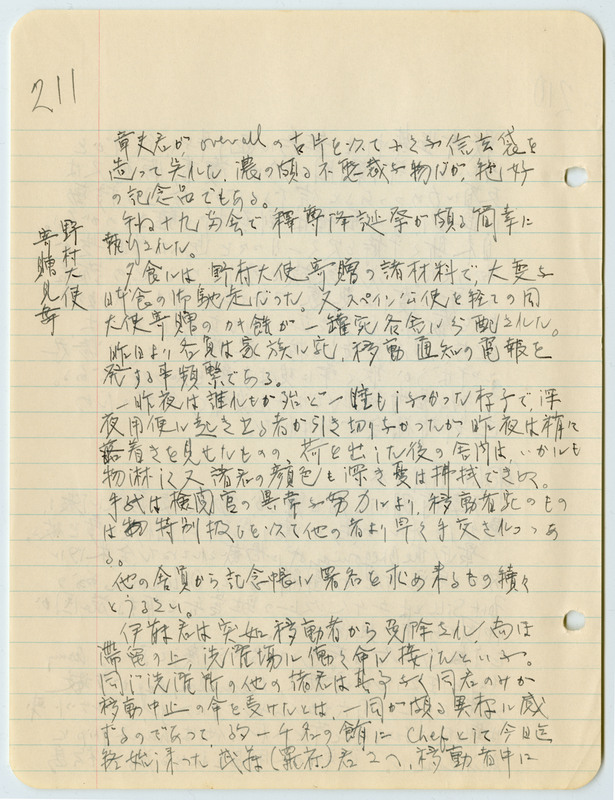 211
章夫君が overall の古片を以て小さな信玄袋を
造って呉れた、濃の頗る不思議な物だが絶好
の記念品でもある。
十九 会で釋尊降誕祭が頗る簡単に
執行された。
野村大使
寄贈見舞
夕食には野村大使寄贈の諸材料で大変な
時食の御馳走だった。又スペイン公使を経ての同
大使寄贈のカキ餅が一罐宛各舎に分配された。
昨日より各員は家族に宛、移動直知の電報を
発する事頻繁である。
一昨夜は誰れもが殆ど一睡もしなかった様子で、深
夜用便に起き出る者が引き切りなかったが昨夜は稍に
落着きを見せたものの、荷を出した後の舎内は、いかにも
物淋しく又諸君の顔色も深き憂は拂拭できぬ。
手紙は検閲官の異常な努力により、移動者宛のもの
は特別扱ひを以て他の者より早く手交されつつあ
る。
他の舎員から記念帳に署名を求め来るもの續々
とうるさい。
伊藤君は突如移動者から免除され、尚は
帶 の上、洗濯場に働く命に接したといふ。
同じ洗濯所の他の諸君は其事なく同君のみが
移動中止の命を受けたとは、一同が頗る異様に感
ずるのであって、約一千名の賄に Chef として今日迄
終始 った武 (羅府)君 へ、移動者中に